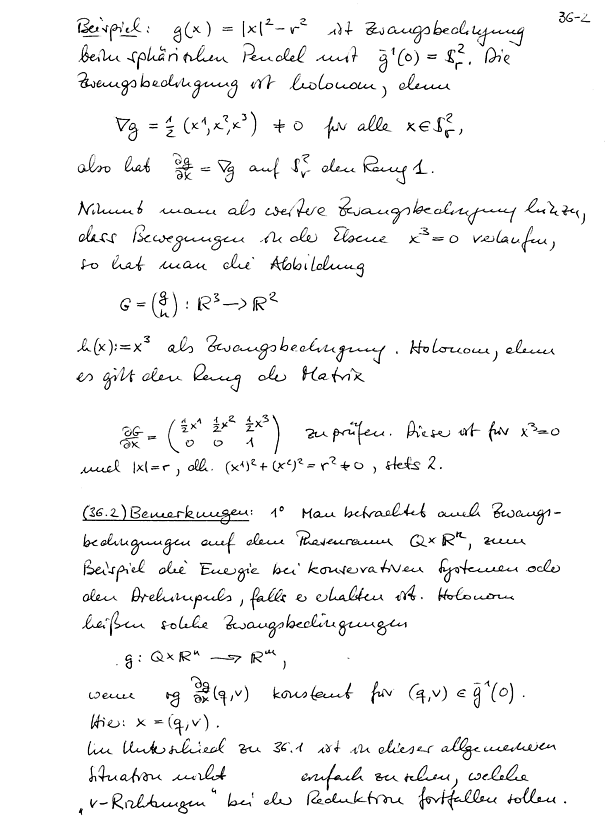 36-2
Beispiel: g(x) = |x|² − r² ist Zwangsbedingung
beim sphärischen Pendel mit g⁻¹(0) = 𝕊²ᵣ. Die
Zwangsbedingung ist holonom, denn
∇g = ½ (x¹, x², x³) ≠ 0 für alle x ∈ 𝕊²ᵣ,
also hat ∂g/∂x = ∇g auf 𝕊²ᵣ den Rang 1.
Nimmt man als weitere Zwangsbedingung hinzu,
dass Bewegungen in der Ebene x³=0 verlaufen,
so hat man die Abbildung
G = (g h) : ℝ³ → ℝ²
h(x):=x³ als Zwangsbedingung. Holonom, denn
es gilt den Rang der Matrix
∂G/∂x = (½x¹ ½x² ½x³ / 0 0 1) zu prüfen. Diese ist für x³=0
und |x|=r, d.h. (x¹)²+(x²)² = r² ≠ 0, stets 2.
(36.2) Bemerkungen: 1° Man betrachtet auch Zwangs-
bedingungen auf dem Phasenraum Q×ℝⁿ, zum
Beispiel die Energie bei konservativen Systemen oder
den Drehimpuls, falls er erhalten ist. Holonom
heißen solche Zwangsbedingungen
g: Q×ℝⁿ → ℝᵐ,
wenn rg ∂g/∂x (q,v) konstant für (q,v) ∈ g⁻¹(0).
Hier: x = (q,v).
Im Unterschied zu 36.1 ist in dieser allgemeineren
Situation nicht einfach zu sehen, welche
„v-Richtungen" bei der Reduktion fortfallen sollen.